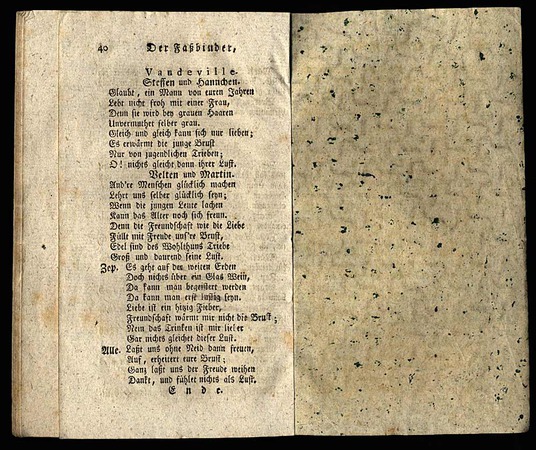 40 Der Faßbinder,
Vandeville.
Steffen und Hannchen.
Glaubt, ein Mann von euren Jahren
Lebt nicht froh mit einer Frau,
Denn sie wird bey grauen Haaren
Unvermuthet selber grau.
Gleich und gleich kann sich nur lieben;
Es erwärmt die junge Brust
Nur von jugendlichen Trieben;
O! nichts gleicht dann ihrer Lust.
Velten und Martin.
And're Menschen glücklich machen
Lehrt uns selber glücklich seyn;
Wenn die jungen Leute lachen
Kann das Alter noch sich freun.
Denn die Freundschaft wie die Liebe
Füllt mit Freude uns're Brust,
Edel sind des Wohlthuns Triebe
Groß und daurend seine Lust.
Zep. Es geht auf der weiten Erden
Doch nichts über ein Glas Wein,
Da kann man begeistert werden
Da kann man erst lustig seyn.
Liebe ist ein hitzig Fieber,
Freundschaft wärmt mir nicht die Brust;
Nein das Trinken ist mir lieber
Gar nichts gleichet dieser Lust.
Alle. Laßt uns ohne Neid dann freuen,
Auf, erheitert eure Brust;
Ganz laßt uns der Freude weihen
Dankt, und fühlet nichts als Lust,
Ende.